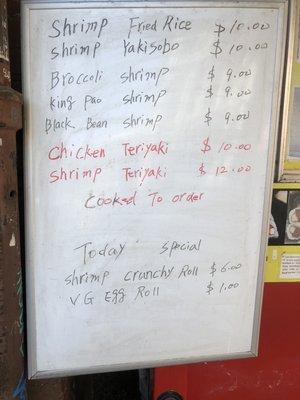 Shrimp Fried Rice $10.00
shrimp Yakisobo $10.00
Broccoli shrimp $9.00
King pao shrimp $9.00
Black Bean shrimp $9.00
Chicken Teriyaki $10.00
Shrimp Teriyaki $12.00
Cooked To order
Today special
shrimp crunchy Roll $6.00
VG Egg Roll $1.00